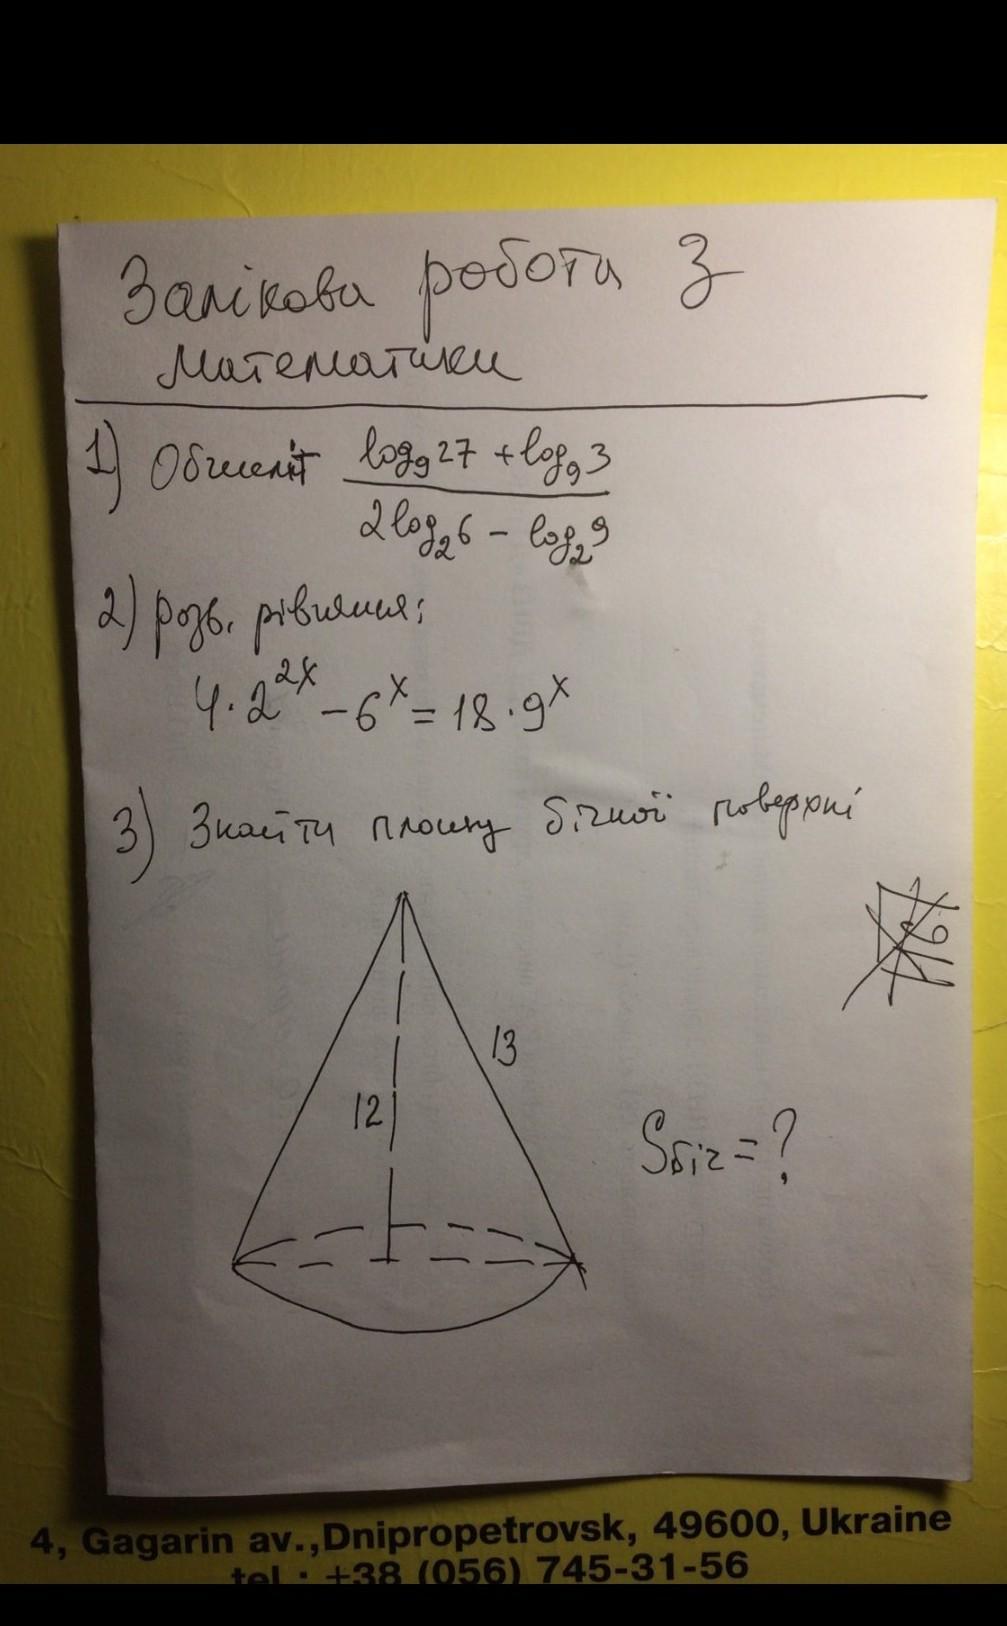 Залікова робота з
Математики
1) Обчисліт log₉27 + log₉3 / 2log₂6 − log₂9
2) розв. рівняння:
4·2^2x − 6^x = 18·9^x
3) Знайти площу бічної поверхні
13
12
Sбіч = ?
4, Gagarin av.,Dnipropetrovsk, 49600, Ukraine
tel.: +38 (056) 745-31-56